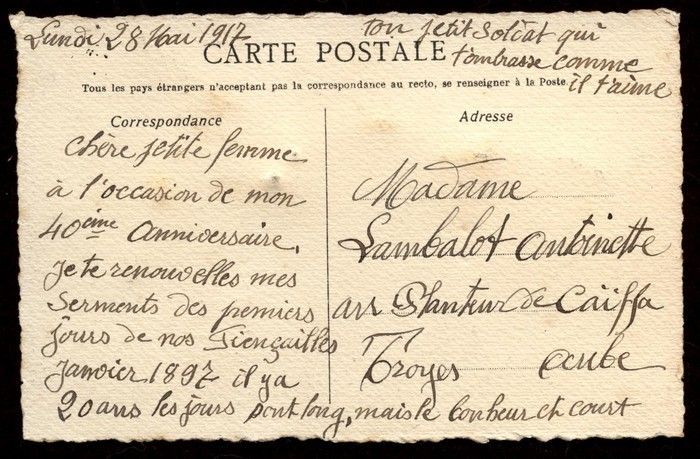 Lundi 28 Mai 1917
ton petit Soldat qui
t'embrasse comme
il t'aime
CARTE POSTALE
Tous les pays étrangers n'acceptant pas la correspondance au recto, se renseigner à la Poste.
Correspondance
chère petite femme
à l'occasion de mon
40ème Anniversaire,
je te renouvelles mes
Serments des premiers
jours de nos Fiençailles
Janvier 1897 il y a
20 ans les jours sont long, mais le bonheur et court
Adresse
Madame
Lambalot Antoinette
au Planteur de Caïffa
Troyes Aube